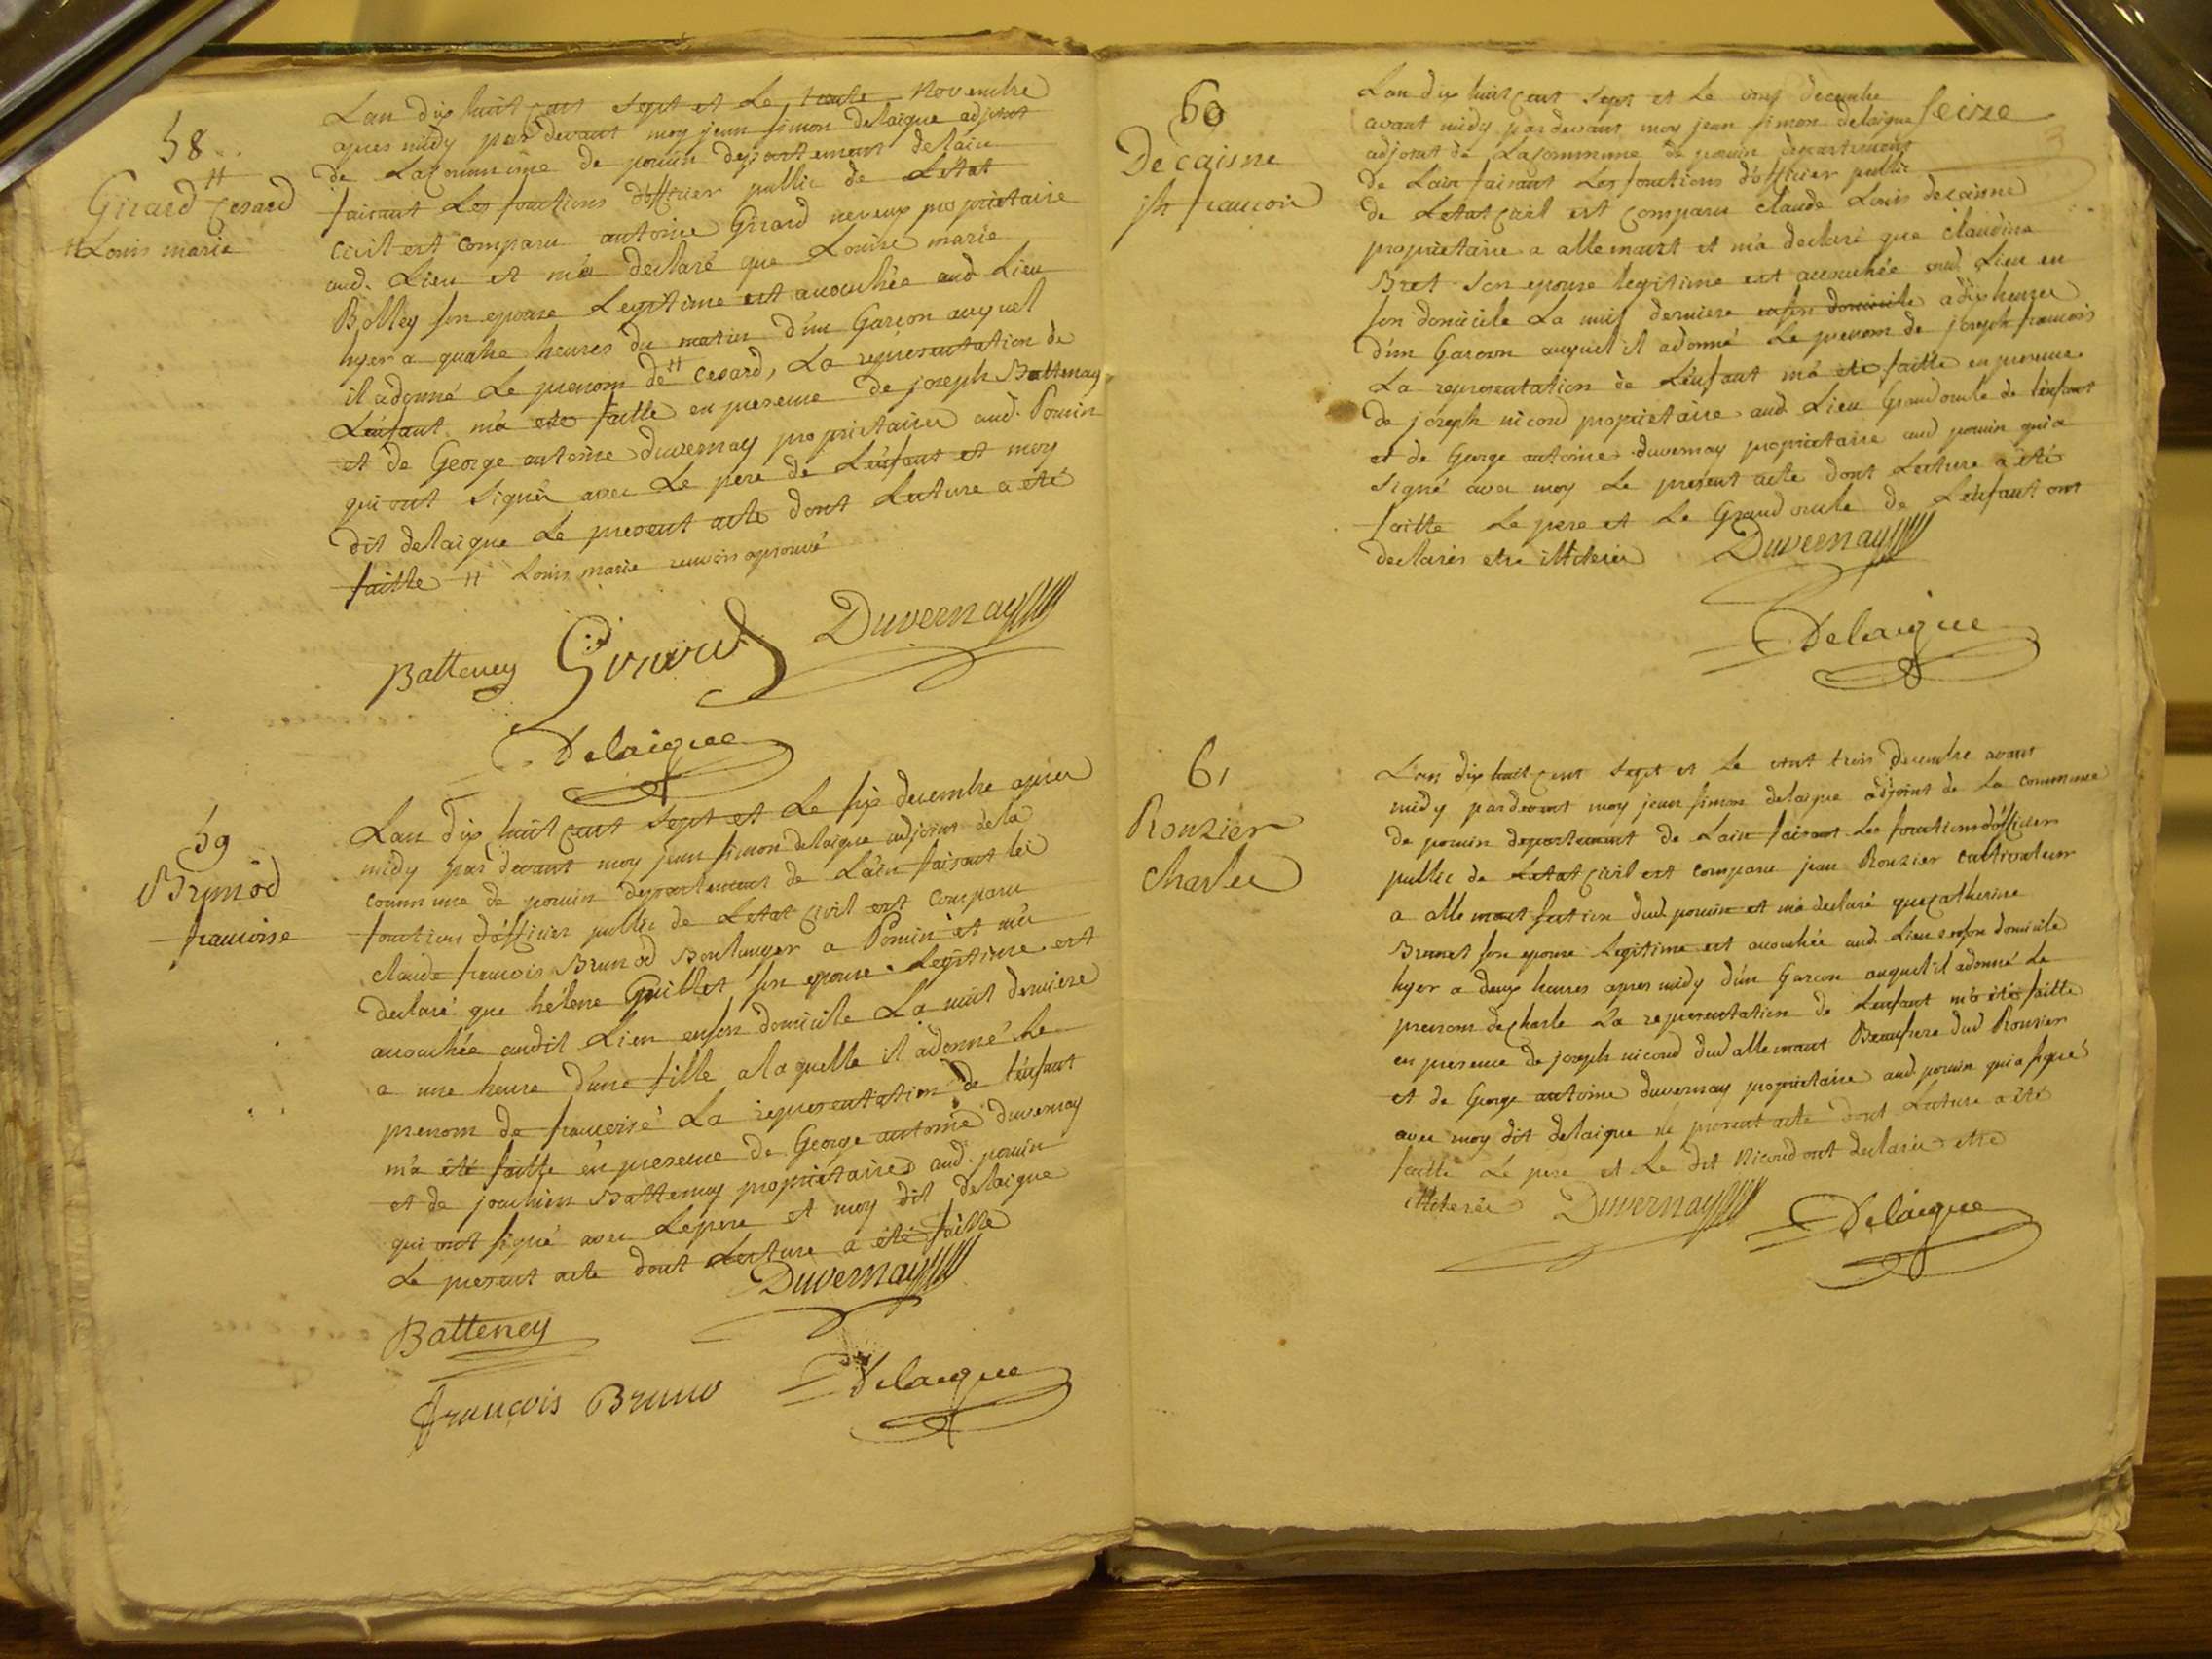 58
Girard # Cesard
# Louis marie
Lan dix huit cent sept et Le trente Novembre
apres midy par devant moy jean simon delaigue adjoint
de La Commune de pouin departement de lain
faisant Les fonctions d'officier public de Letat
civil est comparu antoine Girard neveux proprietaire
aud. Lieu et m'a declaré que Louise marie
Bolley son epouse Legitime est accouchée aud Lieu
hyer a quatre heures du matin d'un Garçon auquel
il a donné Le prenom de # Cesard, La representation de
Lenfant m'a eté faitte en presence de joseph Battenay
et de George antoine duvernay proprietaires aud. Pouin
qui ont signér avec Le pere de Lenfant et moy
dit delaigue Le present acte dont Lecture a eté
faitte # Louis marie renvois aprouvé
Batteney Girard Duvernay
Delaigue
59
Brunod
francoise
Lan dix huit cent sept et Le six decembre apres
midy par devant moy jean simon delaigue adjoint de la
commune de pouin departement de L'ain faisant les
fonctions d'officier public de Letat civil est comparu
claude francois Brunod Boulanger a Pouin et m'a
declaré que hélene Guillet son epouse Legitime est
accouchée audit Lieu en son domicile La nuit derniere
a une heure d'une fille a laquelle il a donné Le
prenom de francoise La representation de l'enfant
m'a été faitte en presence de George antoine duvernay
et de joachim Battenay proprietaires aud. pouin
qui ont signé avec Le pere et moy dit delaigue
Le present acte dont Lecture a été faitte
Duvernay
Batteney
francois Bruno Delaigue
60
Decaisne
jh francois
Seize
Lan dix huit cent sept et Le onze decembre
avant midy par devant moy jean simon delaigue
adjoint de La Commune de pouin departement
de Lain faisant Les fonctions d'officier public
de Letat civil est comparu claude Louis decaisne
proprietaire a allemant et m'a declaré que claudine
Bret son epouse legitime est accouchée aud Lieu en
son domicile La nuit derniere en son domicile a dix heures
d'un Garcon auquel il a donné Le prenom de joseph francois
La representation de Lenfant m'a été faitte en presence
de joseph nicoud proprietaire aud Lieu Grand oncle de lenfant
et de George antoine duvernay proprietaire aud pouin qui a
signé avec moy Le present acte dont Lecture a été
faitte Le pere et Le Grand oncle de Lenfant ont
declarés etre illiterés Duvernay
Delaigue
61
Rouzier
Charles
Lan dix huit cent sept et Le vint trois decembre avant
midy par devant moy jean simon delaigue adjoint de La commune
de pouin departement de Lain faisant Les fonctions d'officier
public de Letat civil est comparu jean Rouzier cultivateur
a allemant section dud. pouin et m'a declaré que catherine
Brunet son epouse Legitime est accouchée aud Lieu en son domicile
hyer a deux heures apres midy d'un Garcon auquel il a donné Le
prenom de Charle La representation de Lenfant m'a été faitte
en presence de joseph nicoud dud allemant Beaufrere dud Rouzier
et de George antoine duvernay proprietaire aud. pouin qui a signé
avec moy dit delaigue le present acte dont Lecture a été
faitte Le pere et Le dit Nicoud ont declarés etre
illiterés Duvernay Delaigue